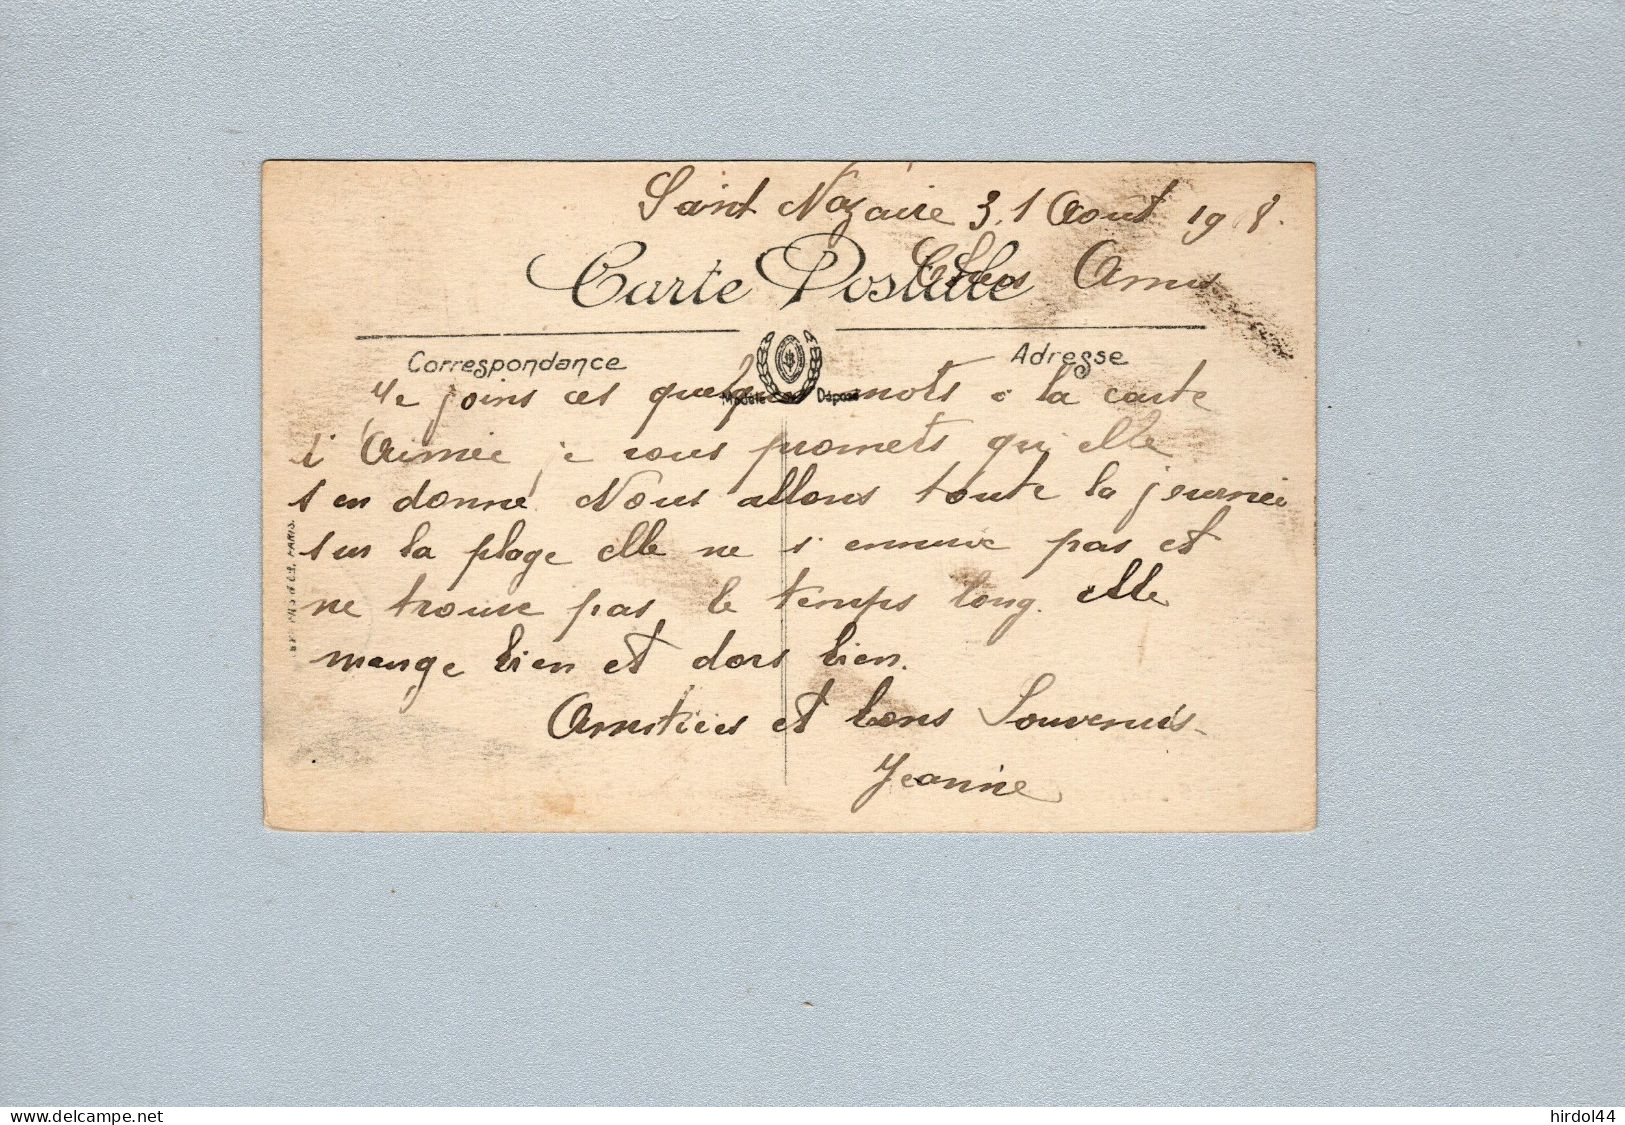 Saint Nazaire 31 Aout 19 8.
Carte Postale
Chers Amis
Correspondance
Adresse
Modèle Déposé
Je joins ces quelques mots a la carte
d'Aimée je vous promets qu'elle
s'en donne. Nous allons toute la journée
sur la plage elle ne s'ennuie pas et
ne trouve pas le temps long. elle
mange bien et dors bien.
Amitiées et bons Souvenirs-
Jeanne
PARIS.
delcampe.net
hirdol44